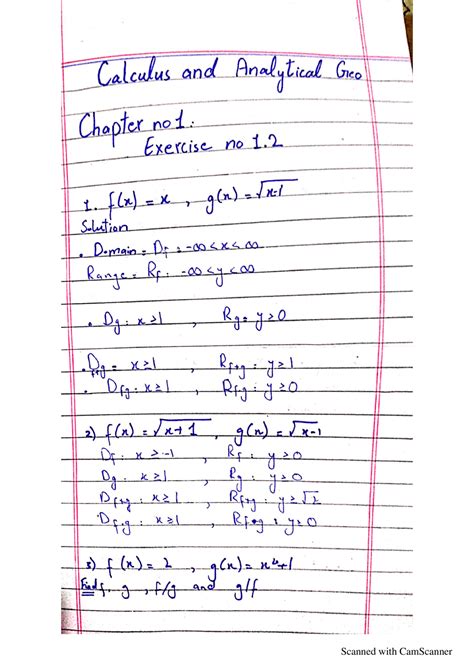 Calculus and Analytical Geo
Chapter no 1:
Exercise no 1.2
1. f(x) = x , g(x) = √x-1
Solution
. Domain = Df : -∞<x<∞
Range = Rf : -∞<y<∞
. Dg : x≥1 , Rg = y≥0
. Df+g = x≥1 , Rf+g : y≥1
. Dfg : x≥1 , Rfg : y≥0
2) f(x) = √x+1 , g(x) = √x-1
Df : x≥-1 , Rf : y≥0
Dg : x≥1 , Rg : y≥0
Df+g : x≥1 , Rf+g : y≥√2
Df.g : x≥1 , Rf.g : y≥0
3) f(x) = 2 , g(x) = x²+1
Find f. g , f/g and g/f
Scanned with CamScanner